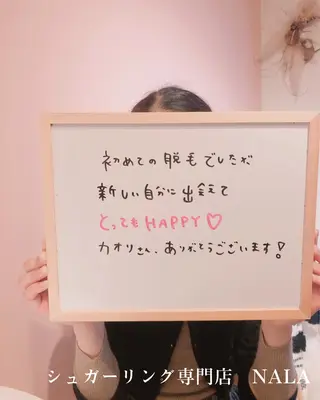 初めての脱毛でしたが
新しい自分に出会えて
とってもHAPPY♡
カオリさん、ありがとうございます!
シュガーリング専門店 NALA